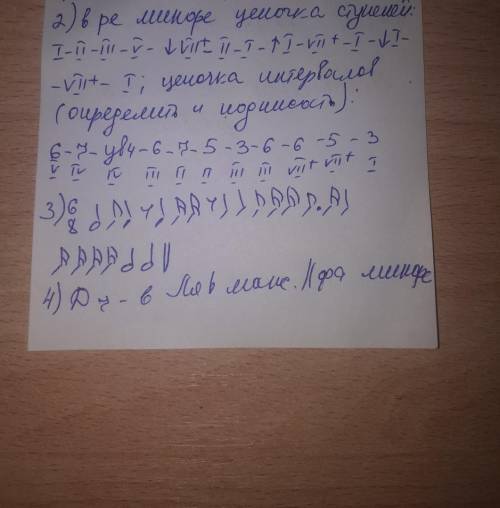 2) в ре миноре цепочка ступеней:
I - II - III - V - ↓VII+ - II - I - ↑I - VII+ - I - ↓I -
- VII+ - I; цепочка интервалов
(определить и подписать):
6 - 7 - ув4 - 6 - 7 - 5 - 3 - 6 - 6 - 5 - 3
V IV IV III II II III III VII+ VII+ I
3) 6
8
4) D7 - в Ля b маж. || фа миноре